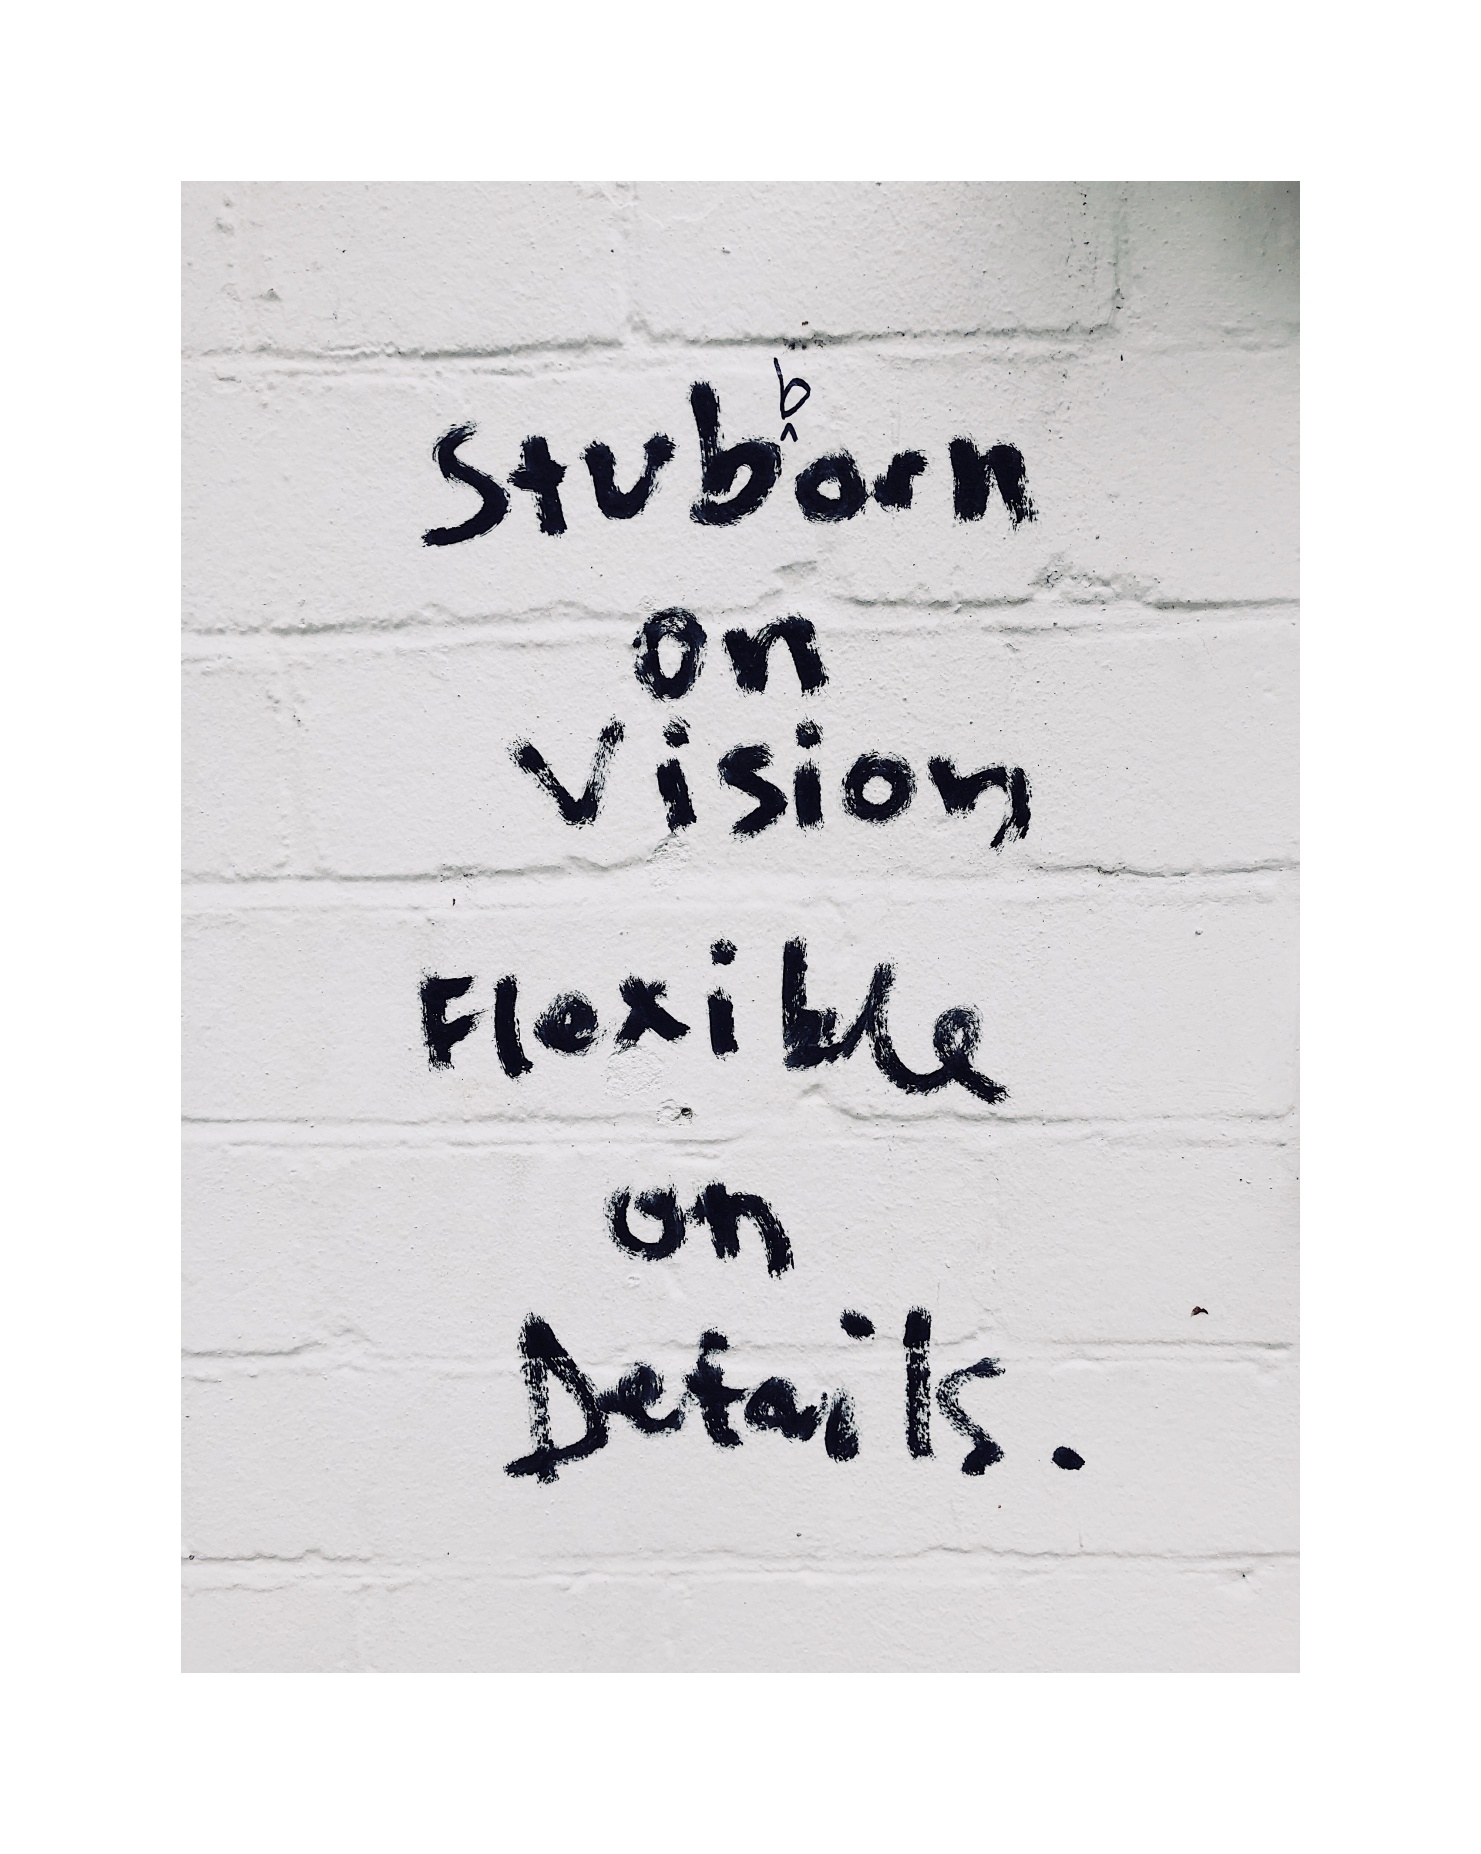 b
Stuborn
on
Vision
Flexible
on
Details.